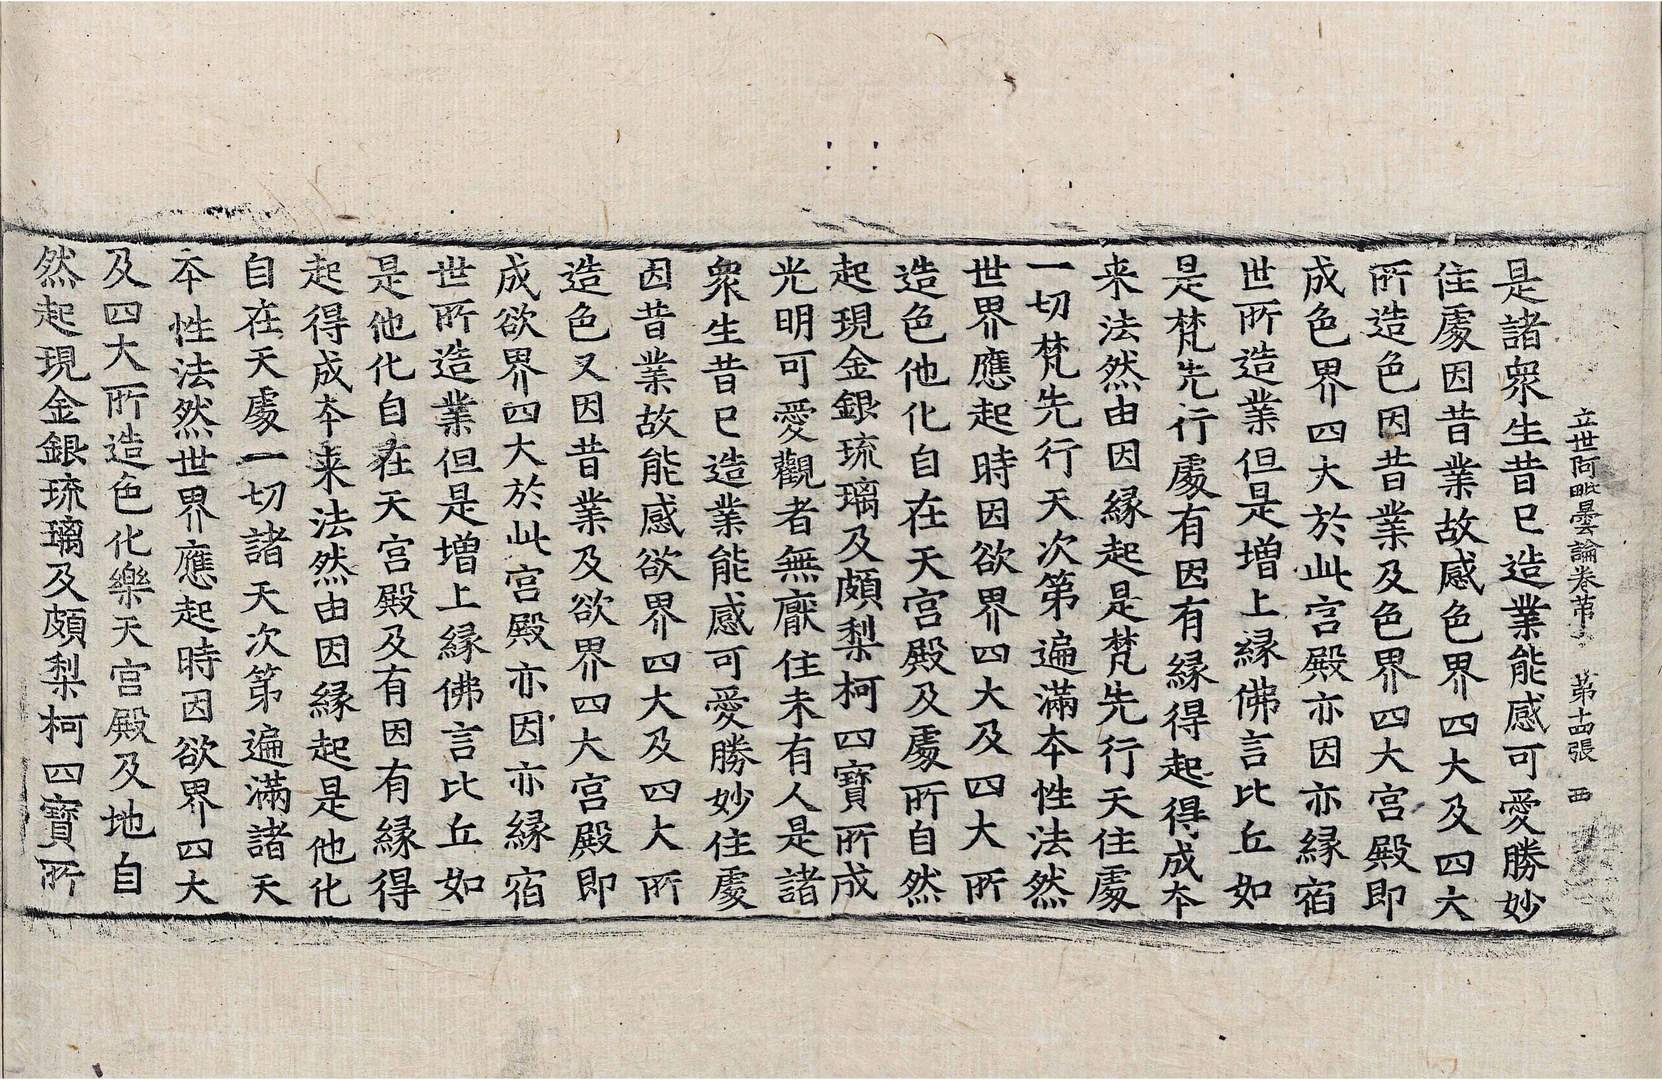 立世阿毗曇論卷苐 苐十四張 西
是諸衆生昔已造業能感可愛勝妙
住處因昔業故感色界四大及四大
所造色因昔業及色界四大宮殿即
成色界四大於此宮殿亦因亦緣宿
世所造業但是增上緣佛言比丘如
是梵先行處有因有緣得起得成本
来法然由因緣起是梵先行天住處
一切梵先行天次第遍滿本性法然
世界應起時因欲界四大及四大所
造色他化自在天宮殿及處所自然
起現金銀琉璃及頗梨柯四寶所成
光明可愛觀者無厭住未有人是諸
衆生昔已造業能感可愛勝妙住處
因昔業故能感欲界四大及四大所
造色又因昔業及欲界四大宮殿即
成欲界四大於此宮殿亦因亦緣宿
世所造業但是增上緣佛言比丘如
是他化自在天宮殿及有因有緣得
起得成本来法然由因緣起是他化
自在天處一切諸天次第遍滿諸天
本性法然世界應起時因欲界四大
及四大所造色化樂天宮殿及地自
然起現金銀琉璃及頗梨柯四寶所